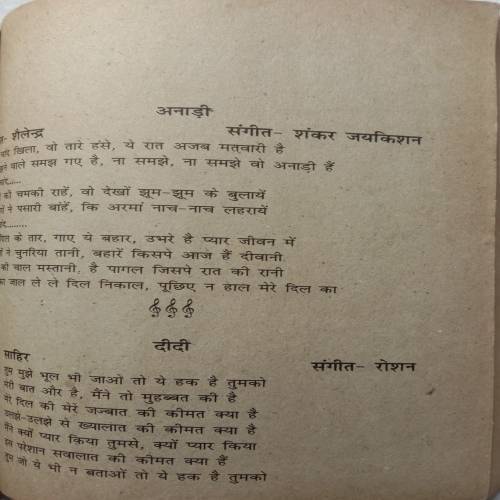 अनाड़ी
शैलेन्द्र संगीत- शंकर जयकिशन
खिला, वो तारे हंसे, ये रात अजब मतवारी है
वाले समझ गए है, ना समझे, ना समझे वो अनाड़ी हैं
की चमकी राहें, वो देखों झूम-झूम के बुलायें
ने पसारी बांहें, कि अरमां नाच-नाच लहरायें
के तार, गाए ये बहार, उभरे है प्यार जीवन में
ने चुनरिया तानी, बहारें किसपे आज हैं दीवानी
की चाल मस्तानी, है पागल जिसपे रात की रानी
जाल ले ले दिल निकाल, पूछिए न हाल मेरे दिल का
दीदी
साहिर संगीत- रोशन
तुम मुझे भूल भी जाओ तो ये हक है तुमको
मेरी बात और है, मैंने तो मुहब्बत की है
मेरे दिल की मेरे जज्बात की कीमत क्या है
उलझे-उलझे से ख्यालात की कीमत क्या है
मैंने क्यों प्यार किया तुमसे, क्यों प्यार किया
परेशान सवालात की कीमत क्या हैं
तुम जो ये भी न बताओं तो ये हक है तुमको